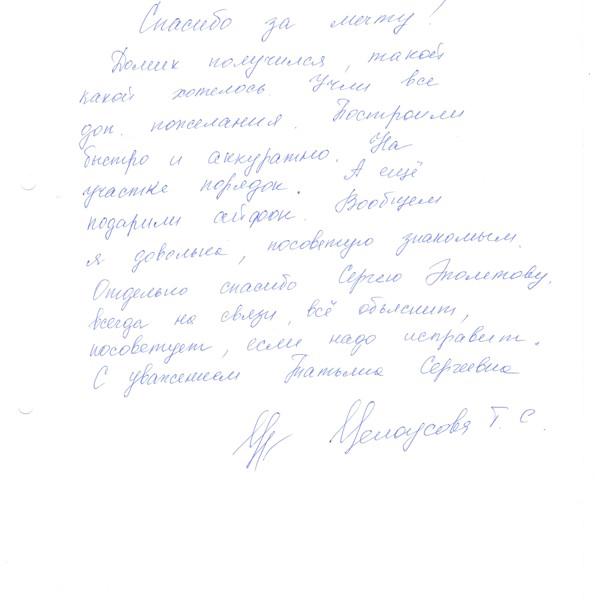 Спасибо за мечту!
Домик получился, такой
какой хотелось. Учли все
доп. пожелания. Построили
быстро и аккуратно. На
участке порядок. А ещё
подарили айфон. Вообщем
я довольна, посоветую знакомым.
Отдельно спасибо Сергею Эполетову,
всегда на связи, всё объяснит,
посоветует, если надо исправит.
С уважением Татьяна Сергеевна
Т. С.